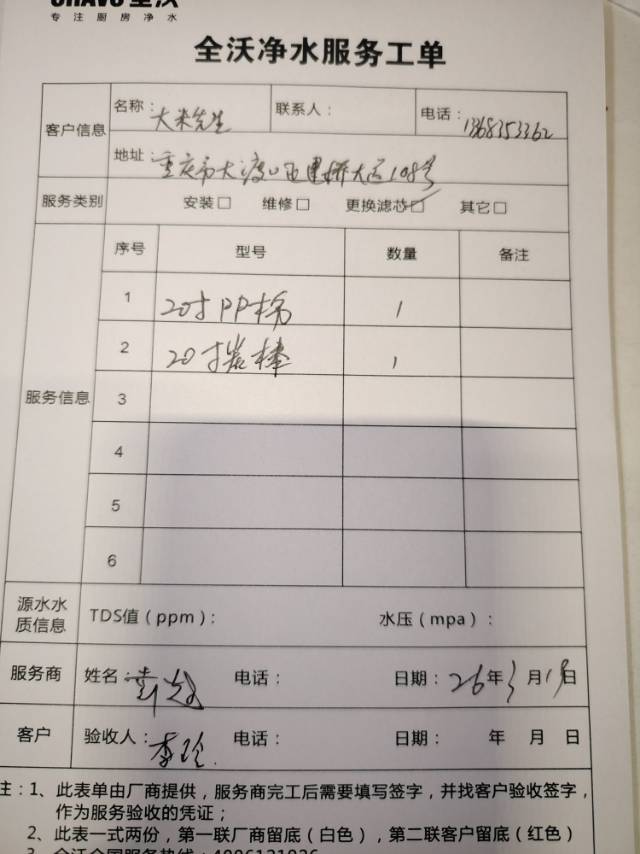 专注厨房净水
全沃净水服务工单
客户信息
名称：大米先生
联系人：
电话：1368353362
地址：重庆市大渡口区建桥大道198号
服务类别 安装□ 维修□ 更换滤芯☑ 其它□
服务信息
序号 型号 数量 备注
1 20寸PP棉 1
2 20寸炭棒 1
3
4
5
6
源水水质信息 TDS值（ppm）： 水压（mpa）：
服务商 姓名： 电话： 日期：26年3月1日
客户 验收人：李玲 电话： 日期： 年 月 日
注：1、此表单由厂商提供，服务商完工后需要填写签字，并找客户验收签字，
作为服务验收的凭证；
2、此表一式两份，第一联厂商留底（白色），第二联客户留底（红色）